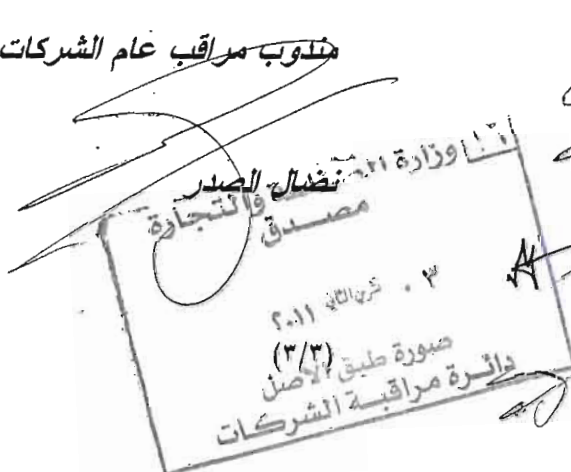 مندوب مراقب عام الشركات
نضال الصدر
وزارة الصناعة والتجارة
مصدق
٠٣ تشرين الثاني ٢٠١١
(٣/٣)
صورة طبق الأصل
دائرة مراقبة الشركات